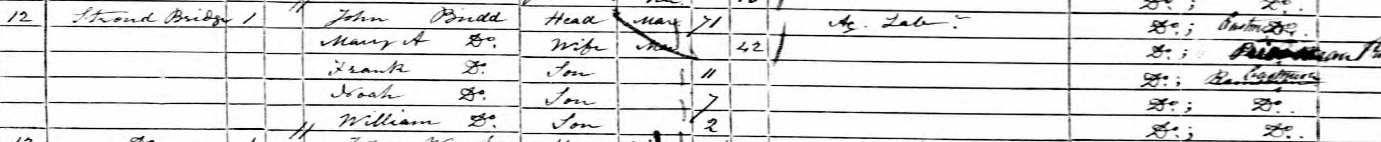 12 Stroud Bridge 1 John Budd Head Mar 71 Ag. Lab. Do; Do.
Mary A Do. Wife Mar 42 Do;
Frank Do. Son 11 Do;
Noah Do. Son 7 Do; Do.
William Do. Son 2 Do; Do.